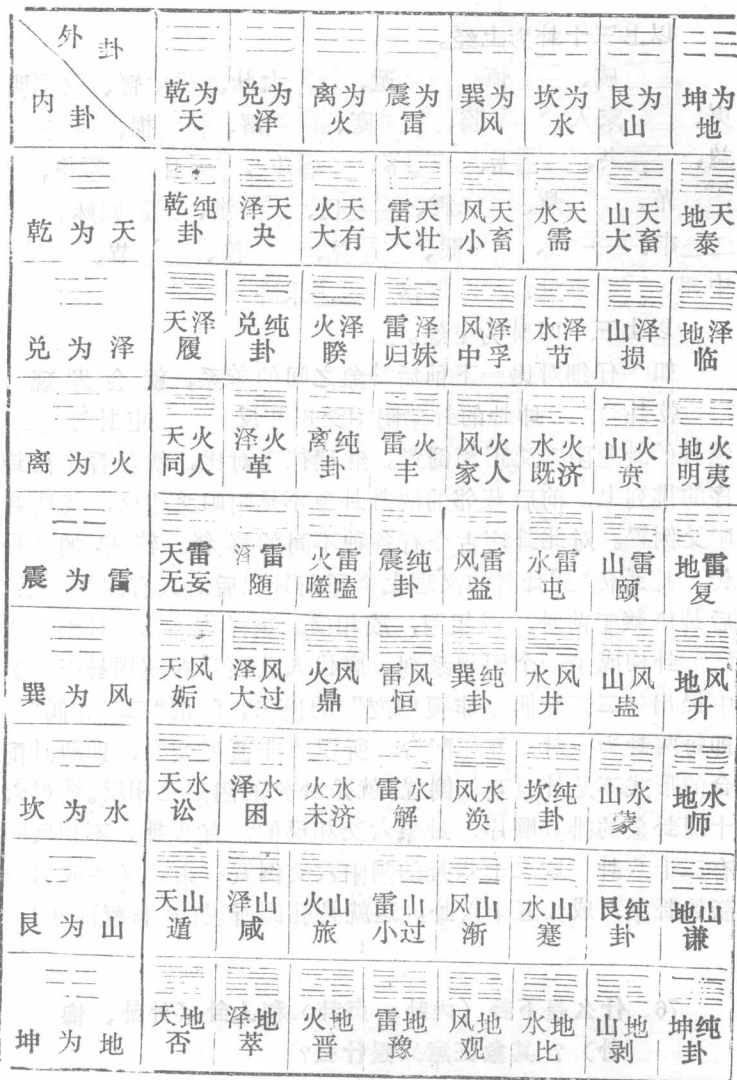 外卦
内卦
乾为天 兑为泽 离为火 震为雷 巽为风 坎为水 艮为山 坤为地
乾为天 乾纯卦 泽天夬 火天大有 雷天大壮 风天小畜 水天需 山天大畜 地天泰
兑为泽 天泽履 兑纯卦 火泽睽 雷泽归妹 风泽中孚 水泽节 山泽损 地泽临
离为火 天火同人 泽火革 离纯卦 雷火丰 风火家人 水火既济 山火贲 地火明夷
震为雷 天雷无妄 雷随 火雷噬嗑 震纯卦 风雷益 水雷屯 山雷颐 地雷复
巽为风 天风姤 泽风大过 火风鼎 雷风恒 巽纯卦 水风井 山风蛊 地风升
坎为水 天水讼 泽水困 火水未济 雷水解 风水涣 坎纯卦 山水蒙 地水师
艮为山 天山遁 泽山咸 火山旅 雷山小过 风山渐 水山蹇 艮纯卦 地山谦
坤为地 天地否 泽地萃 火地晋 雷地豫 风地观 水地比 山地剥 坤纯卦